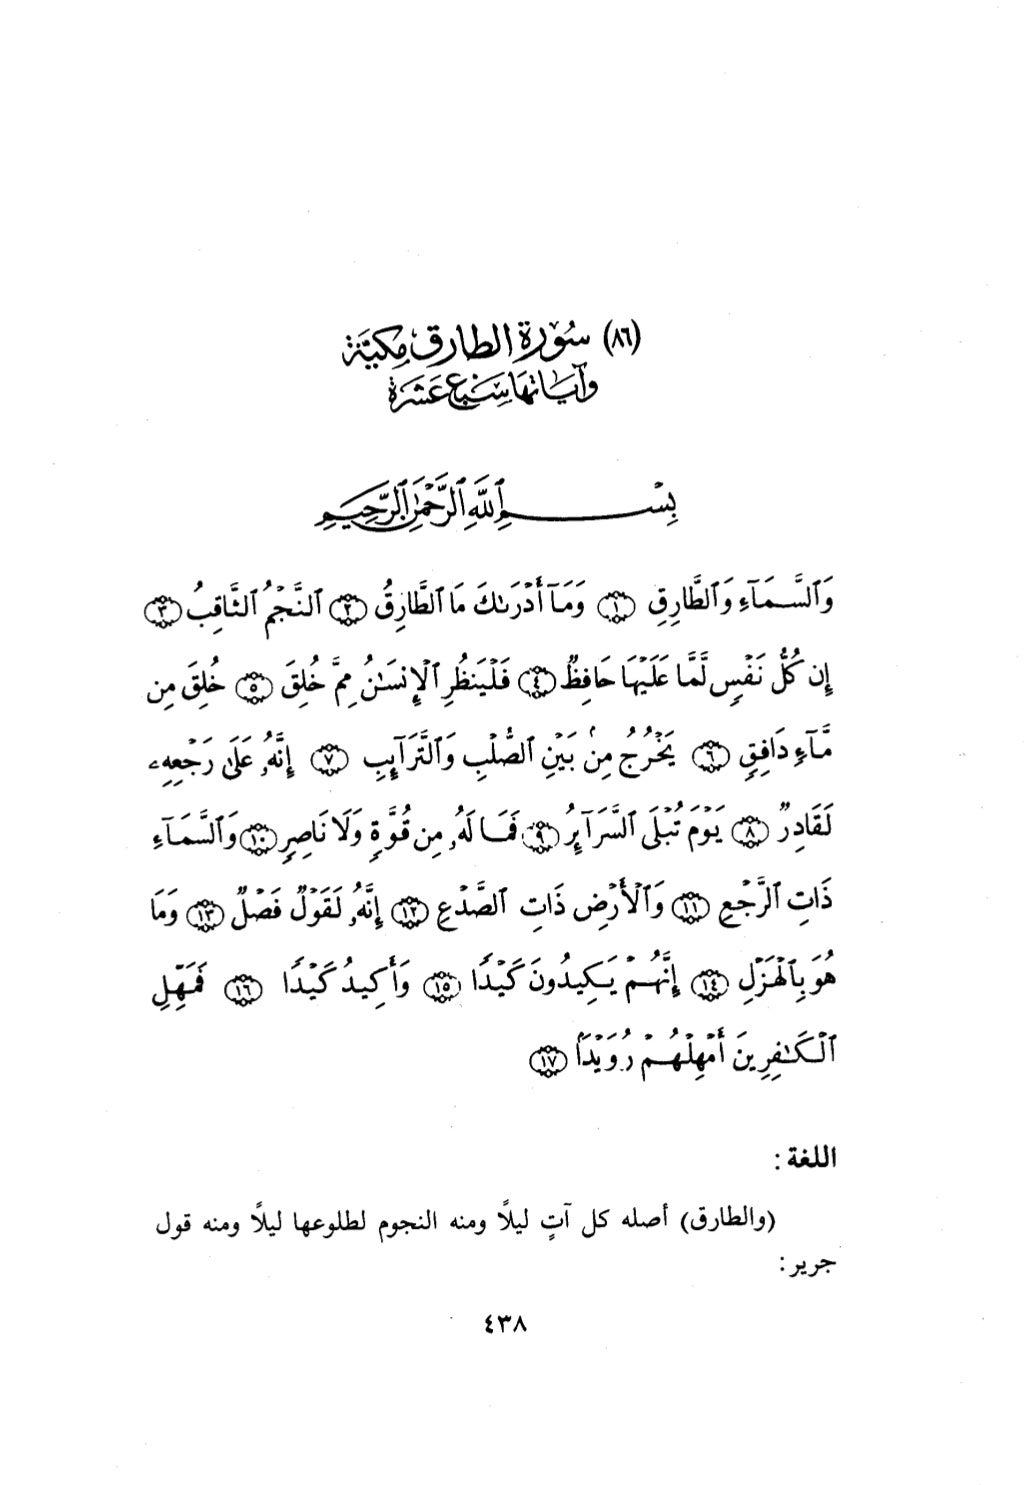 (٨٦) سُوْرَةِ الطارق مِكيَّة
وآيَاتهَا سَبْع عَشَرَة
بِسْمِ ٱللَّهِ ٱلرَّحْمَٰنِ ٱلرَّحِيمِ
وَٱلسَّمَآءِ وَٱلطَّارِقِ ١ وَمَآ أَدْرَىٰكَ مَا ٱلطَّارِقُ ٢ ٱلنَّجْمُ ٱلثَّاقِبُ ٣
إِن كُلُّ نَفْسٍ لَّمَّا عَلَيْهَا حَافِظٌ ٤ فَلْيَنظُرِ ٱلْإِنسَٰنُ مِمَّ خُلِقَ ٥ خُلِقَ مِن
مَّآءٍ دَافِقٍ ٦ يَخْرُجُ مِنۢ بَيْنِ ٱلصُّلْبِ وَٱلتَّرَآئِبِ ٧ إِنَّهُۥ عَلَىٰ رَجْعِهِۦ
لَقَادِرٌ ٨ يَوْمَ تُبْلَى ٱلسَّرَآئِرُ ٩ فَمَا لَهُۥ مِن قُوَّةٍ وَلَا نَاصِرٍ ١٠ وَٱلسَّمَآءِ
ذَاتِ ٱلرَّجْعِ ١١ وَٱلْأَرْضِ ذَاتِ ٱلصَّدْعِ ١٢ إِنَّهُۥ لَقَوْلٌ فَصْلٌ ١٣ وَمَا
هُوَ بِٱلْهَزْلِ ١٤ إِنَّهُمْ يَكِيدُونَ كَيْدًا ١٥ وَأَكِيدُ كَيْدًا ١٦ فَمَهِّلِ
ٱلْكَٰفِرِينَ أَمْهِلْهُمْ رُوَيْدًا ١٧
اللغة :
(والطارق) أصله كل آتٍ ليلًا ومنه النجوم لطلوعها ليلًا ومنه قول
جرير :
٤٣٨